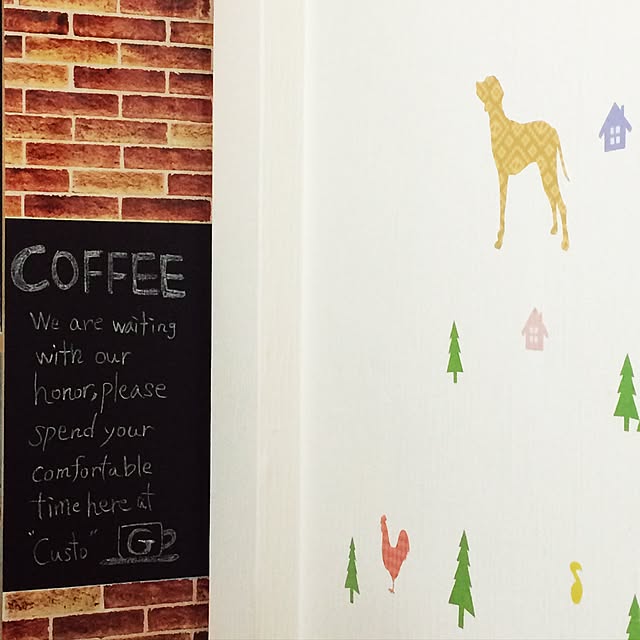 COFFEE
We are waiting
with our
honor, please
spend your
comfortable
time here at
"Custo" G